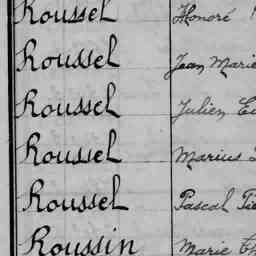 Roussel Honoré
Roussel Jean Marie
Roussel Julien
Roussel Marius
Roussel Pascal
Roussin Marie